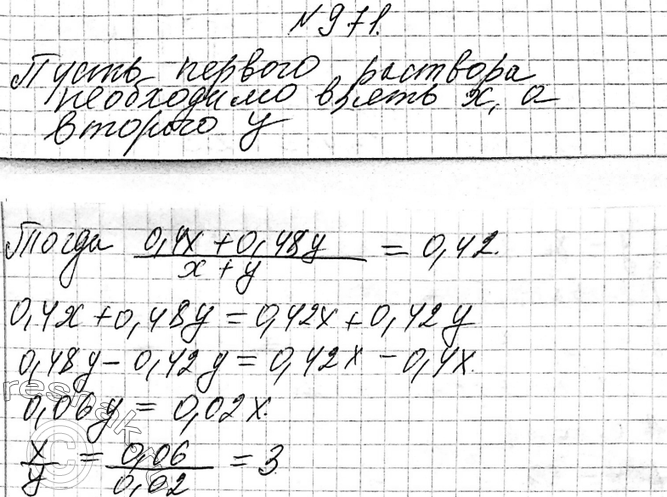 № 971.
Пусть первого раствора
необходимо взять x, а
второго y
Тогда (0,4x + 0,48y)/(x + y) = 0,42.
0,4x + 0,48y = 0,42x + 0,42y
0,48y - 0,42y = 0,42x - 0,4x.
0,06y = 0,02x.
x/y = 0,06/0,02 = 3